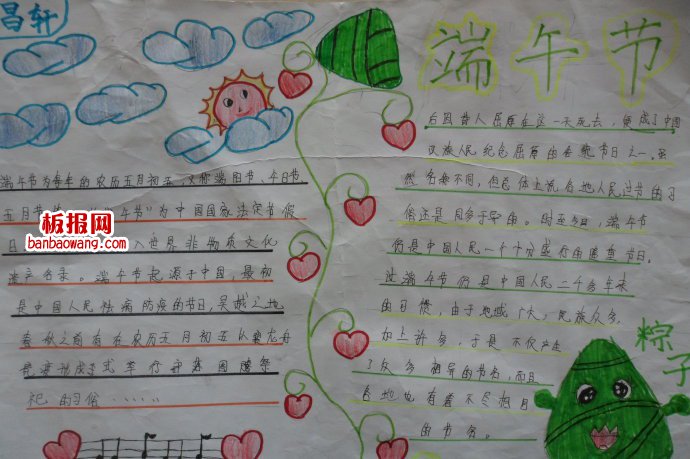 昌轩
端午节
端午节为每年的农历五月初五,又称端阳节、午日节
五月节
午节”为中国国家法定节假
日
入世界非物质文化
遗产名录。端午节起源于中国,最初
是中国人民祛病防疫的节日,吴越之地
春秋之前有在农历五月初五以
龙舟
形式举行部落图腾祭
祀的习俗......
后因诗人屈原在这一天死去,便成了中国
汉族人民纪念屈原的传统节日之一。虽
然名称不同,但总体上说各地人民过节的习
俗还是同多于异的。时至今日,端午节
仍是中国人民一个十分盛行的隆重节日。
过端午节仍是中国人民二千多年来
的习惯,由于地域广大,民族众多,
加上许多,于是不仅产生
了众多相异的节名,而且
各地也有着不尽相同
的节名。
粽子
板报网
banbaowang.com